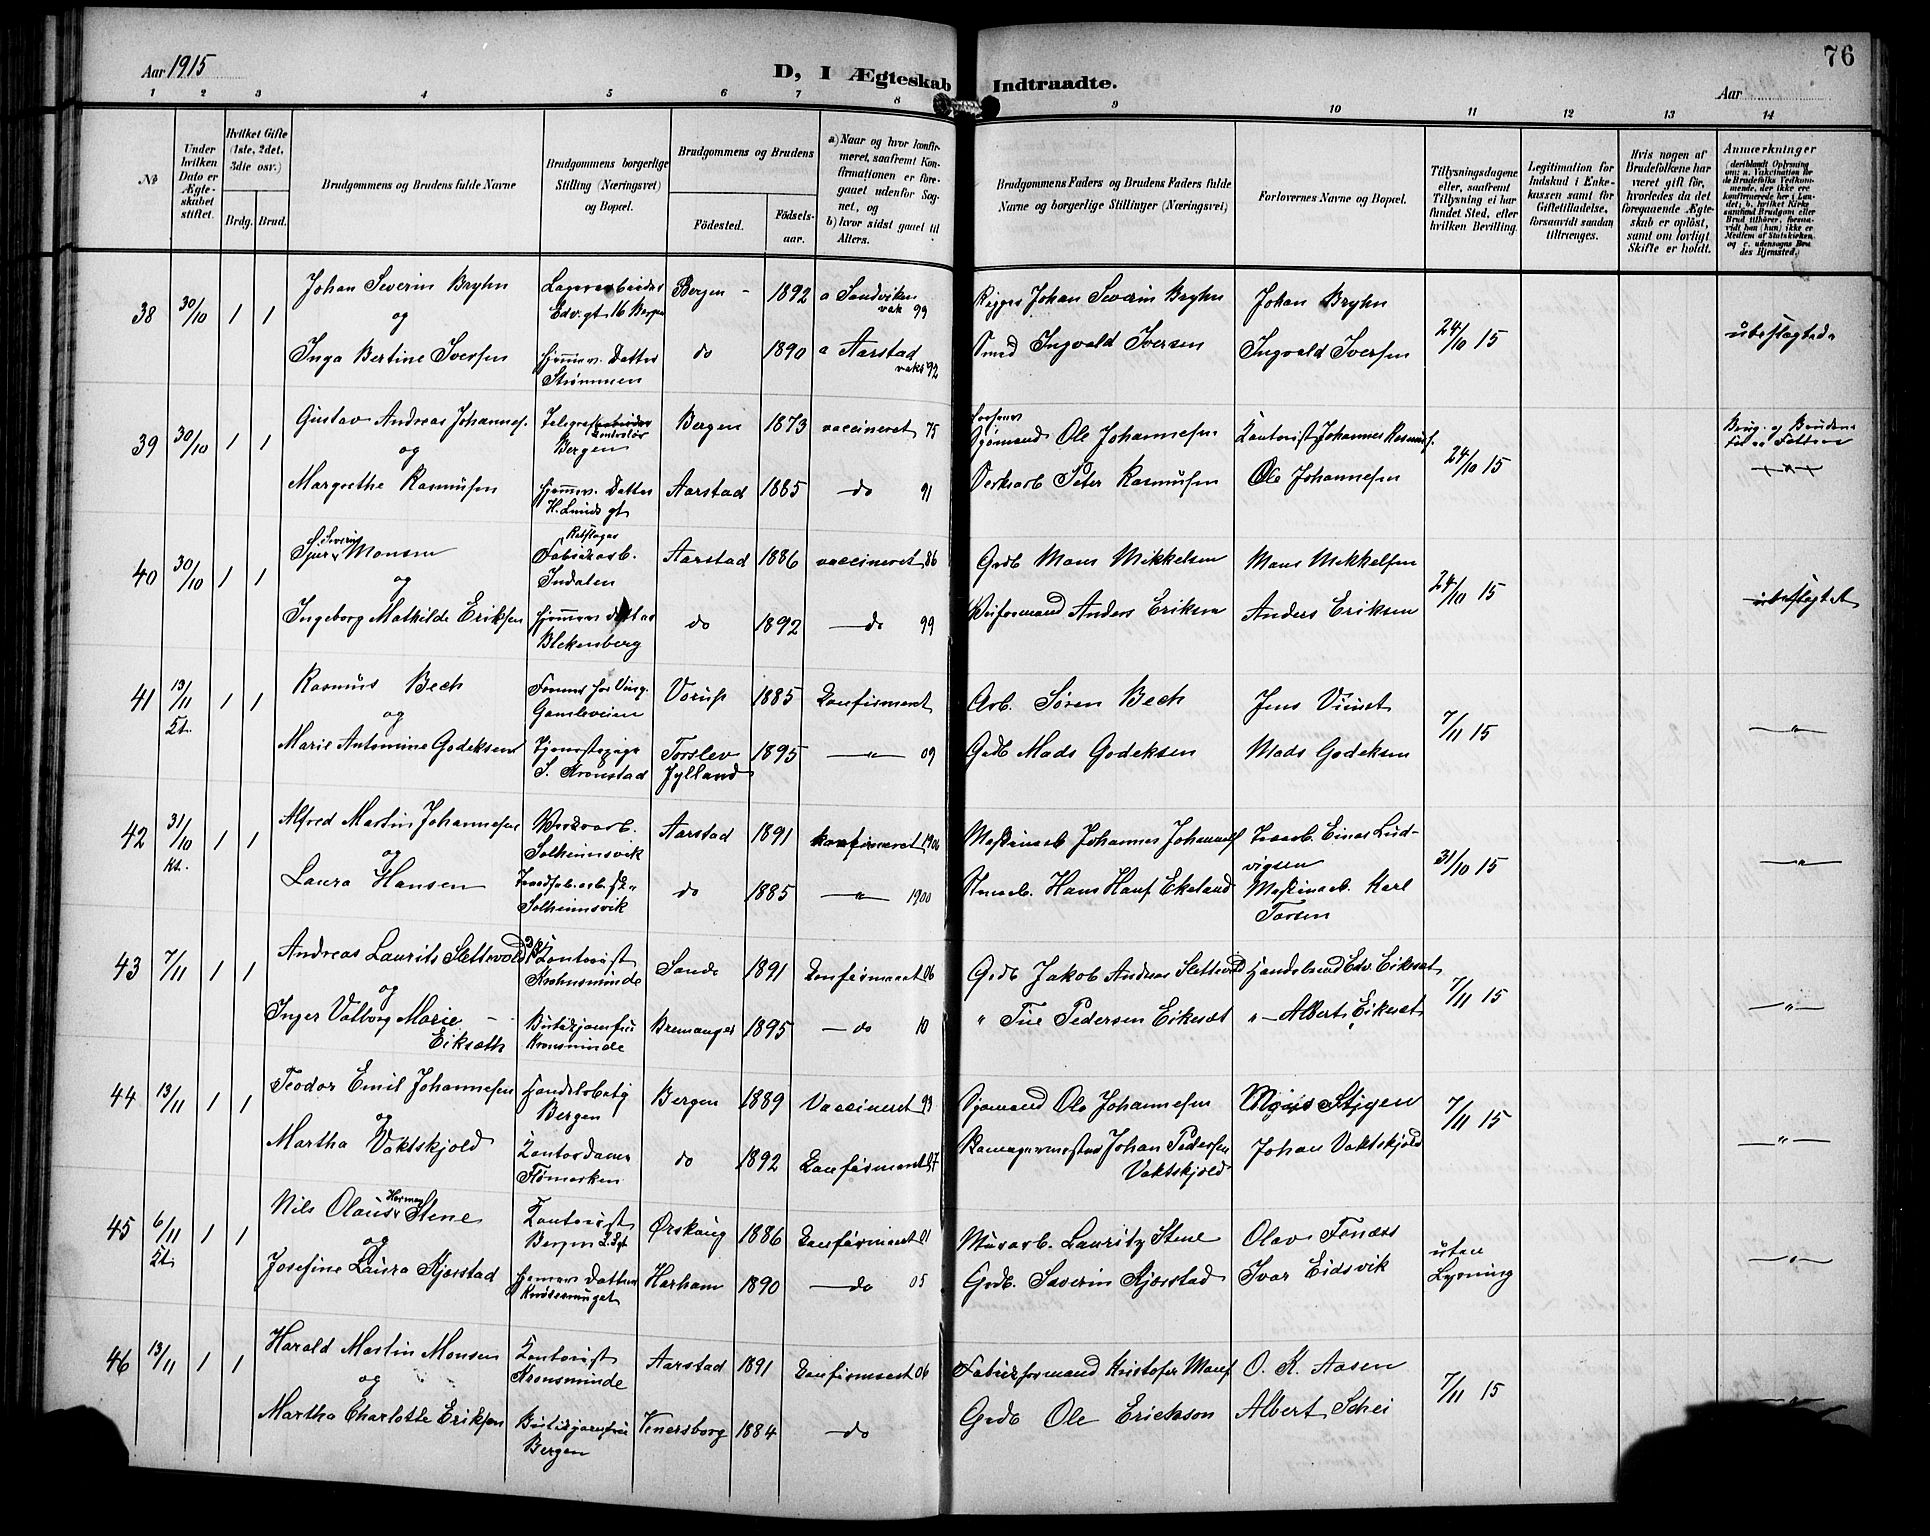 Aar 1915
D, I Ægteskab Indtraadte.
76
Aar
1 2 3 4 5 6 7 8 9 10 11 12 13 14
№
Under hvilken Dato er Ægteskabet stiftet.
Hvilket Gifte (1ste, 2det, 3die osv.)
Brdg. Brud.
Brudgommens og Brudens fulde Navne
Brudgommens borgerlige Stilling (Næringsvei) og Bopæl.
Brudgommens og Brudens
Fødested.
Fødselsaar.
a) Naar og hvor konfirmeret, saafremt Konfirmationen er foregaaet udenfor Sognet, og
b) hvor sidst gaaet til Alters.
Brudgommens Faders og Brudens Faders fulde Navne og borgerlige Stillinger (Næringsvei)
Forlovernes Navne og Bopæl.
Tillysningsdagene eller, saafremt Tillysning ei har fundet Sted, efter hvilken Bevilling.
Legitimation for Indskud i Enkekassen samt for Giftetilladelse, forsaavidt saadan tiltrænges.
Hvis nogen af Brudefolkene har været gift før, hvorledes da det foregaaende Ægteskab er opløst, samt om lovligt Skifte er holdt.
Anmærkninger
(deriblandt Oplysning om: a. Vaksination for de Brudefolks Vedkommende, der ikke ere konfirmerede her i Landet; b. hvilket Kirkesamfund Brudgom eller Brud tilhører, forsaavidt han (hun) ikke er Medlem af Statskirken, og c. udensogns Brudes Hjemsted.)
38 30/10 1 1 Johan Severin Bryhn Lagerarbeider Bergen 1892 a Sandviken Rigger Johan Severin Bryhn Johan Bryhn
og Edv. gt. 16 Bergen vak 99 24/10 15 ubeslagtede
Inga Bertine Iversen Hjemmev. Datter do 1890 a Aarstad Smed Ingvald Iversen Ingvald Iversen
Strømmen vaks 92
39 30/10 1 1 Gustav Andreas Johannes. Telegraf Bergen 1873 vaccineret 75 Sjømand Ole Johannesen Kontorist Johannes Rasmus.
og Bergen 24/10 15 Brug. og Brudens
Margrethe Rasmusen Hjemmev. Datter Aarstad 1885 do 91 Verksarb Peter Rasmusen Ole Johannesen
H. Lunds gt
40 30/10 1 1 Severin Monsen Fabrikarb. Aarstad 1886 vaccineret 86 Grdb Mons Mikkelsen Mons Mikkelsen
og Indalen 24/10 15 ubeslagtet
Ingeborg Mathilde Eriksen Hjemmev datter do 1892 do 99 Anders Eriksen Anders Eriksen
Blekenberg
41 13/11 1 1 Rasmus Bech Vorup 1885 Konfirmeret Arb. Søren Bech Jens
Kt. og Gamleveien 7/11 15 "
Marie Antonine Godeksen Tjenestepige Torslev 1895 " 09 Grdb Mads Godeksen Mads Godeksen
S. Kronstad Jylland
42 31/10 1 1 Alfred Martin Johannesen Verksarb. Aarstad 1891 konfirmeret 1906 Maskinarb Johannes Johannes. Einar Ludvigsen
kt. og Solheimsvik 31/10 15 "
Laura Hansen do 1885 " 1900 Hans Hans. Ekeland Maskinarb. Karl Larsen
Solheimsvik
43 7/11 1 1 Andreas Laurits Slettevold Kontorist Sande 1891 Konfirmeret 06 Grdb Jakob Andreas Slettevold Handelsmd Edv. Eikeset
og Krohnsminde 7/11 15 "
Inger Valborg Marie Eikseth Butikjomfru Bremanger 1895 do 10 " Pedersen Eikeset " Albert Eikeset
Kronsminde
44 13/11 1 1 Teodor Emil Johannesen Handelsbetj Bergen 1889 Vaccineret 93 Sjømand Ole Johannesen Stigen
og Bergen 7/11 15 "
Martha Vaktskjold Kontordame do 1892 Konfirmeret 07 Johan Pedersen Vaktskjold Johan Vaktskjold
45 6/11 1 1 Nils Olaus Herman Stene Kontorist Ørskoug 1886 Konfirmeret 01 Murarb. Lauritz Stene Olav Fonæss
Kt. og Bergen utan Lysning "
Josefine Laura Kjerstad Hjemmev Datter Harham 1890 do 05 Grdb. Severin Kjerstad Ivar Eidsvik
46 13/11 1 1 Harald Martin Monsen Kontorist Aarstad 1891 Konfirmeret 06 Fabrikformand Kristofer Mons. O. K. Aasen
og Kronsminde 7/11 15 "
Martha Charlotte Eriksen Butikjomfru Venersborg 1884 do Grdb Ole Erickson Albert Schei
Bergen